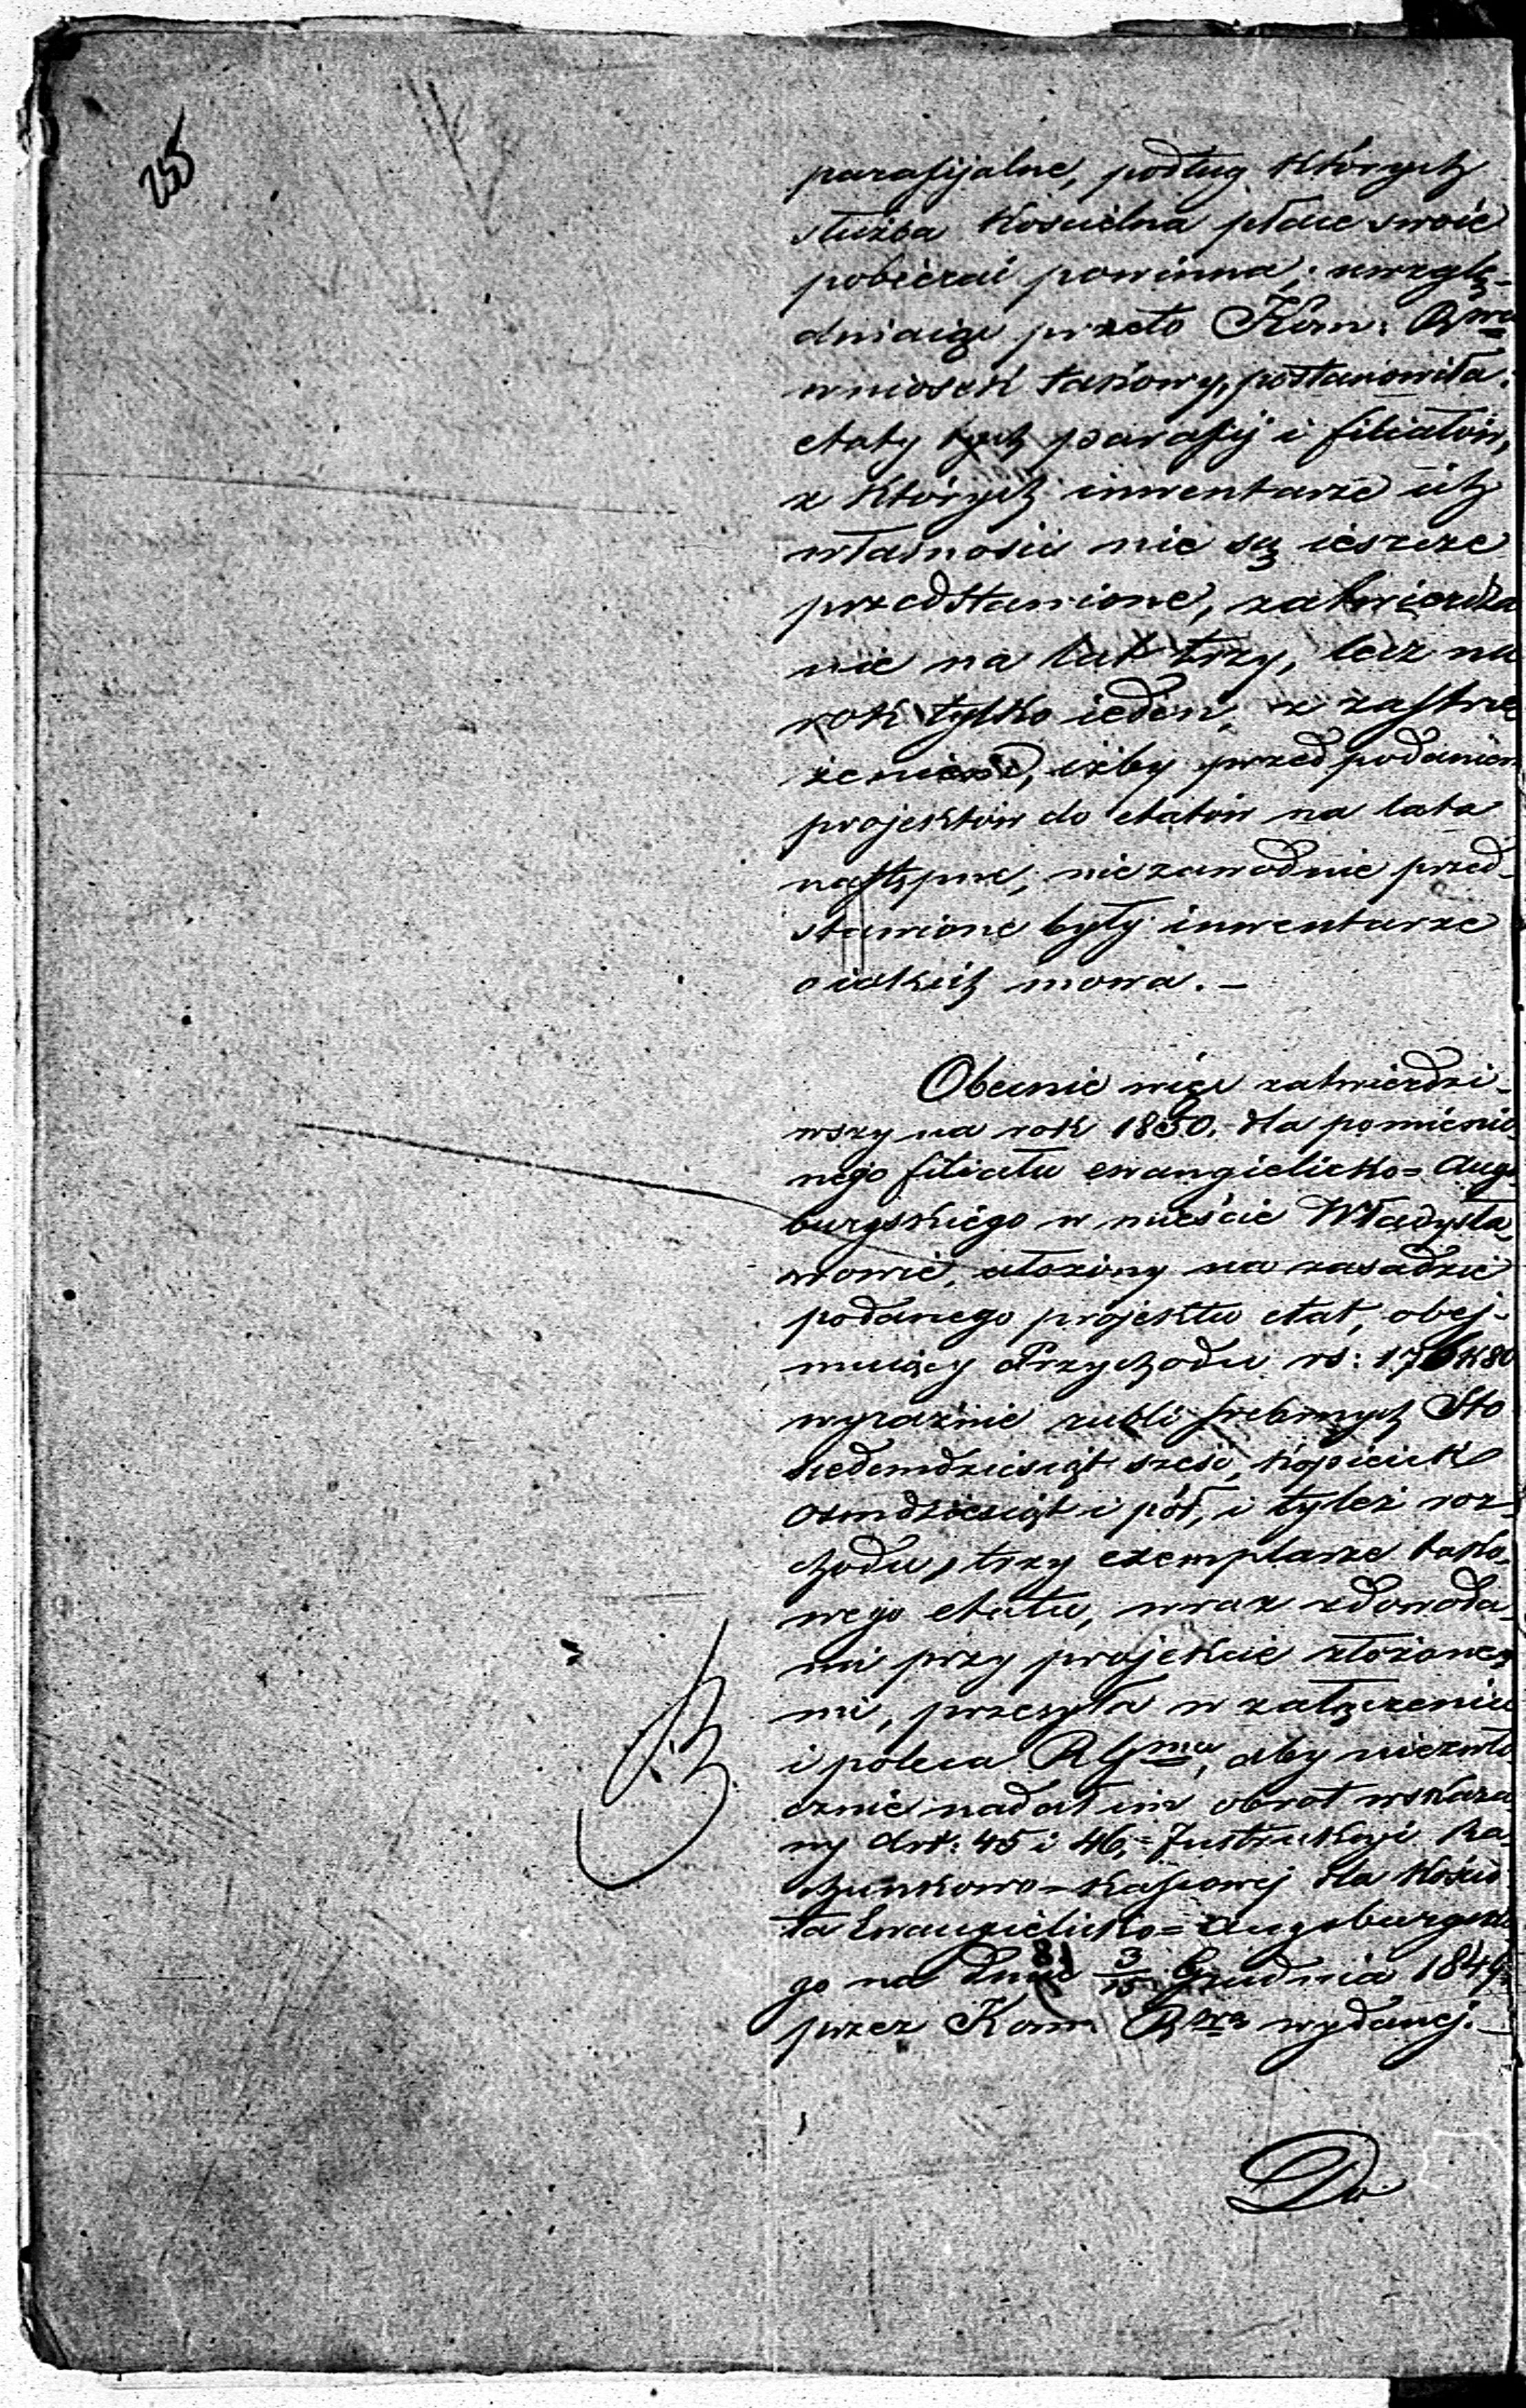 255
parafijalne, podług których
służba kościelna płace swoie
pobierać powinna; uwzglę-
dniaiąc przeto Kom: Rzwa
wniosek takowy, postanowiła:
etaty tych parafij i filiałów,
z których inwentarze ich
własności nie są ieszcze
przedstawione, zatwierdza
nie na lat trzy, lecz na
rok tylko ieden, z zastrze
żeniem, iżby przed podaniem
projektów do etatów na lata
następne, niezawodnie przed-
stawione były inwentarze
o iakich mowa. –
Obecnie więc zatwierdzi-
wszy na rok 1850. dla pomienio
nego filiału ewangielicko=Augs
burgskiego w mieście Władysła
wowie, ułożony na zasadzie
podanego projektu etat, obej-
muiący Przychodu rs: 176 k 80
wyraźnie rubli srebrnych Sto
siedemdziesiąt sześć, kopieiek
osmdziesiąt i pół, i tyleż roz-
chodu, trzy exemplarze tako-
wego etatu, wraz z dowoda-
mi przy projekcie złożone-
mi, przesyła w załączeniu
i poleca RGmu, aby niezwło
cznie nadał im obrót wskaza
ny Art: 45 i 46, Instrukcyi Ra-
chunkowo=Kassowej dla Kościo
ła Ewangielicko=Augsburgskie
go na dniu 3/15 Grudnia 1849
przez Kom Rzwa wydanej. –
Do